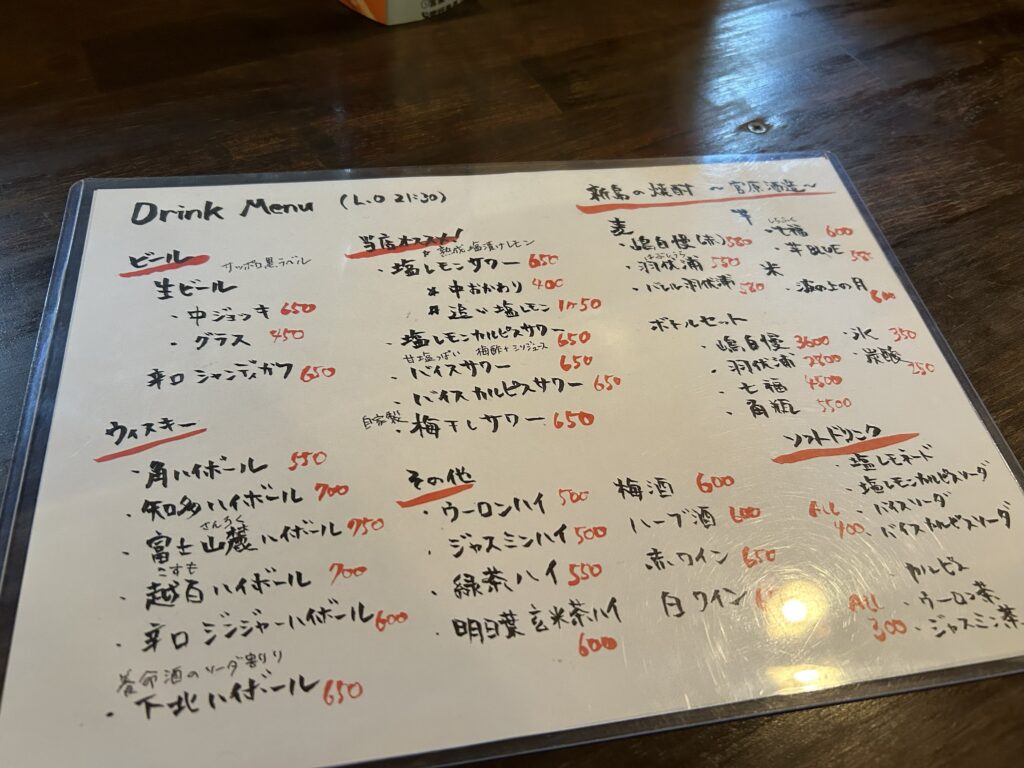 Drink Menu (L.O 21:30)
ビール
サッポロ黒ラベル
生ビール
・中ジョッキ 650
・グラス 450
辛口 シャンディガフ 650
ウィスキー
・角ハイボール 550
・知多ハイボール 700
さんろく
・富士山麓ハイボール 750
こすも
・越百ハイボール 700
・辛口 ジンジャーハイボール 600
養命酒のソーダ割り
・下北ハイボール 650
当店オススメ!
熟成塩漬けレモン
・塩レモンサワー 650
# 中おかわり 400
# 追い塩レモン 1ヶ50
・塩レモンカルピスサワー 650
甘塩っぱい 梅酢+シソジュース
・バイスサワー 650
・バイスカルピスサワー 650
自家製
・梅干しサワー 650
その他
・ウーロンハイ 500
・ジャスミンハイ 500
・緑茶ハイ 550
・明日葉玄米茶ハイ 600
梅酒 600
ハーブ酒 600
赤ワイン 650
白ワイン
新島の焼酎 ～宮原酒造～
麦
・嶋自慢(赤) 580
はぶしうら
・羽伏浦 550
・バレル羽伏浦 580
芋
しちふく
・七福 600
・芋BLUE 580
米
・海の上の月 600
ボトルセット
・嶋自慢 3600
・羽伏浦 2800
・七福 4500
・角瓶 5500
・氷 350
・炭酸 250
ソフトドリンク
・塩レモネード
・塩レモンカルピスソーダ
・バイスソーダ
・バイスカルピスソーダ
All 400
・カルピス
・ウーロン茶
・ジャスミン茶
All 300